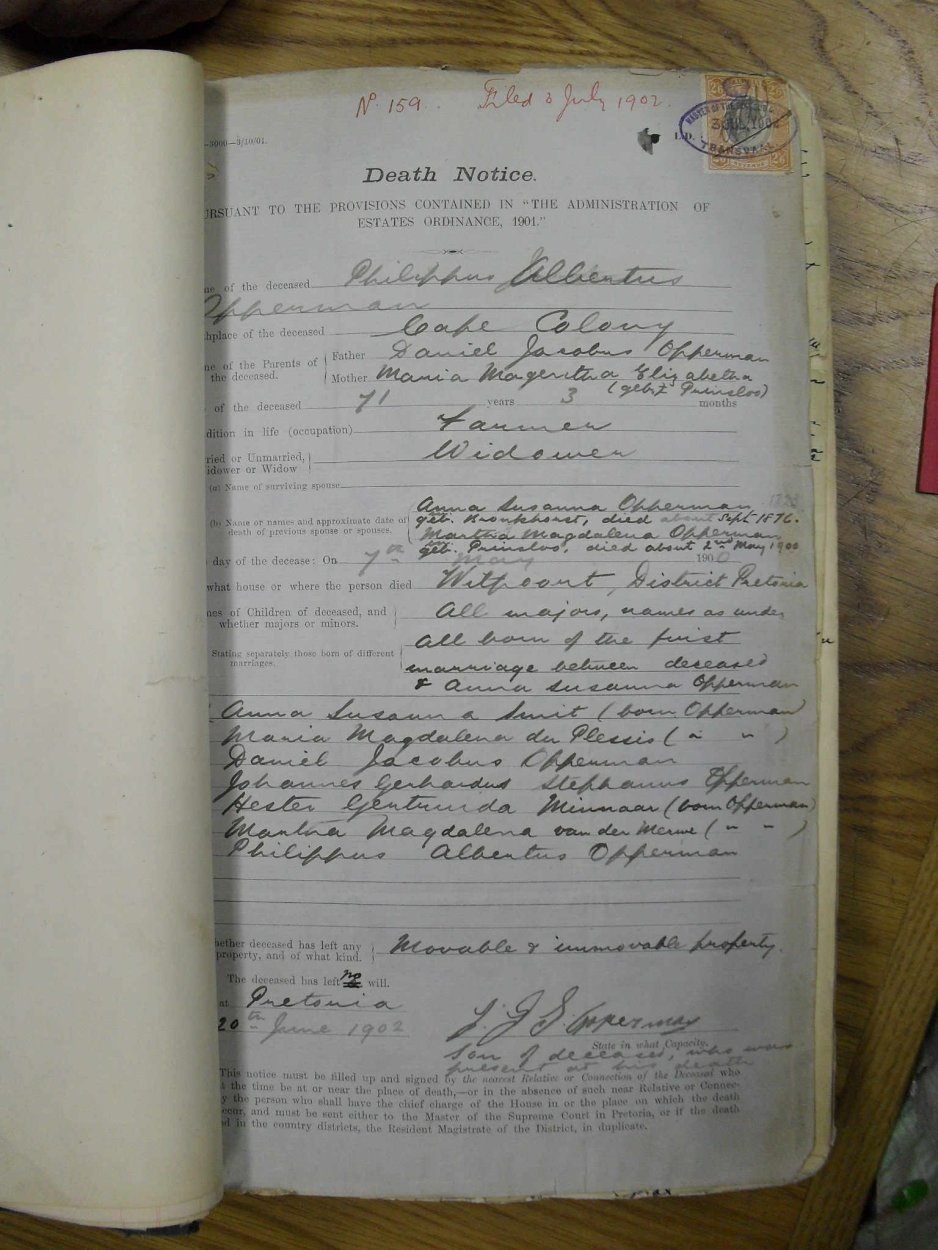 No. 159. Filed 3 July 1902.
—3000—3/10/01.
L.D.
MASTER OF THE
3 JUL 1902
TRANSVAAL
Death Notice.
URSUANT TO THE PROVISIONS CONTAINED IN "THE ADMINISTRATION OF
ESTATES ORDINANCE, 1901."
ne of the deceased Philippus Albertus
Opperman
hplace of the deceased Cape Colony
ne of the Parents of the deceased. Father Daniel Jacobus Opperman
Mother Maria Mageritha Elizabetha
(geb. Prinsloo)
of the deceased 71 years 3 months
dition in life (occupation) Farmer
ried or Unmarried, idower or Widow Widower
(a) Name of surviving spouse
(b) Name or names and approximate date of death of previous spouse or spouses. Anna Susanna Opperman
geb. Bronkhorst, died about Sept. 1876.
Martha Magdalena Opperman
geb. Prinsloo, died about 2nd May 1900
day of the decease: On 7th May 1900
what house or where the person died Witpoort, District Pretoria
nes of Children of deceased, and whether majors or minors. All majors, names as under,
Stating separately those born of different marriages. All born of the first
marriage between deceased
& Anna Susanna Opperman
Anna Susanna Smit (born Opperman)
Maria Magdalena du Plessis ( " " )
Daniel Jacobus Opperman
Johannes Gerhardus Stephanus Opperman
Hester Gertruida Minnaar (born Opperman)
Martha Magdalena van der Merwe ( " " )
Philippus Albertus Opperman
hether deceased has left any property, and of what kind. Movable & immovable property.
The deceased has left no will.
at Pretoria
20th June 1902 J. G. S. Opperman
State in what Capacity.
Son of deceased, who was
present at his death
This notice must be filled up and signed by the nearest Relative or Connection of the Deceased who
t the time be at or near the place of death,—or in the absence of such near Relative or Connec-
y the person who shall have the chief charge of the House in or the place on which the death
ccur, and must be sent either to the Master of the Supreme Court in Pretoria, or if the death
d in the country districts, the Resident Magistrate of the District, in duplicate.